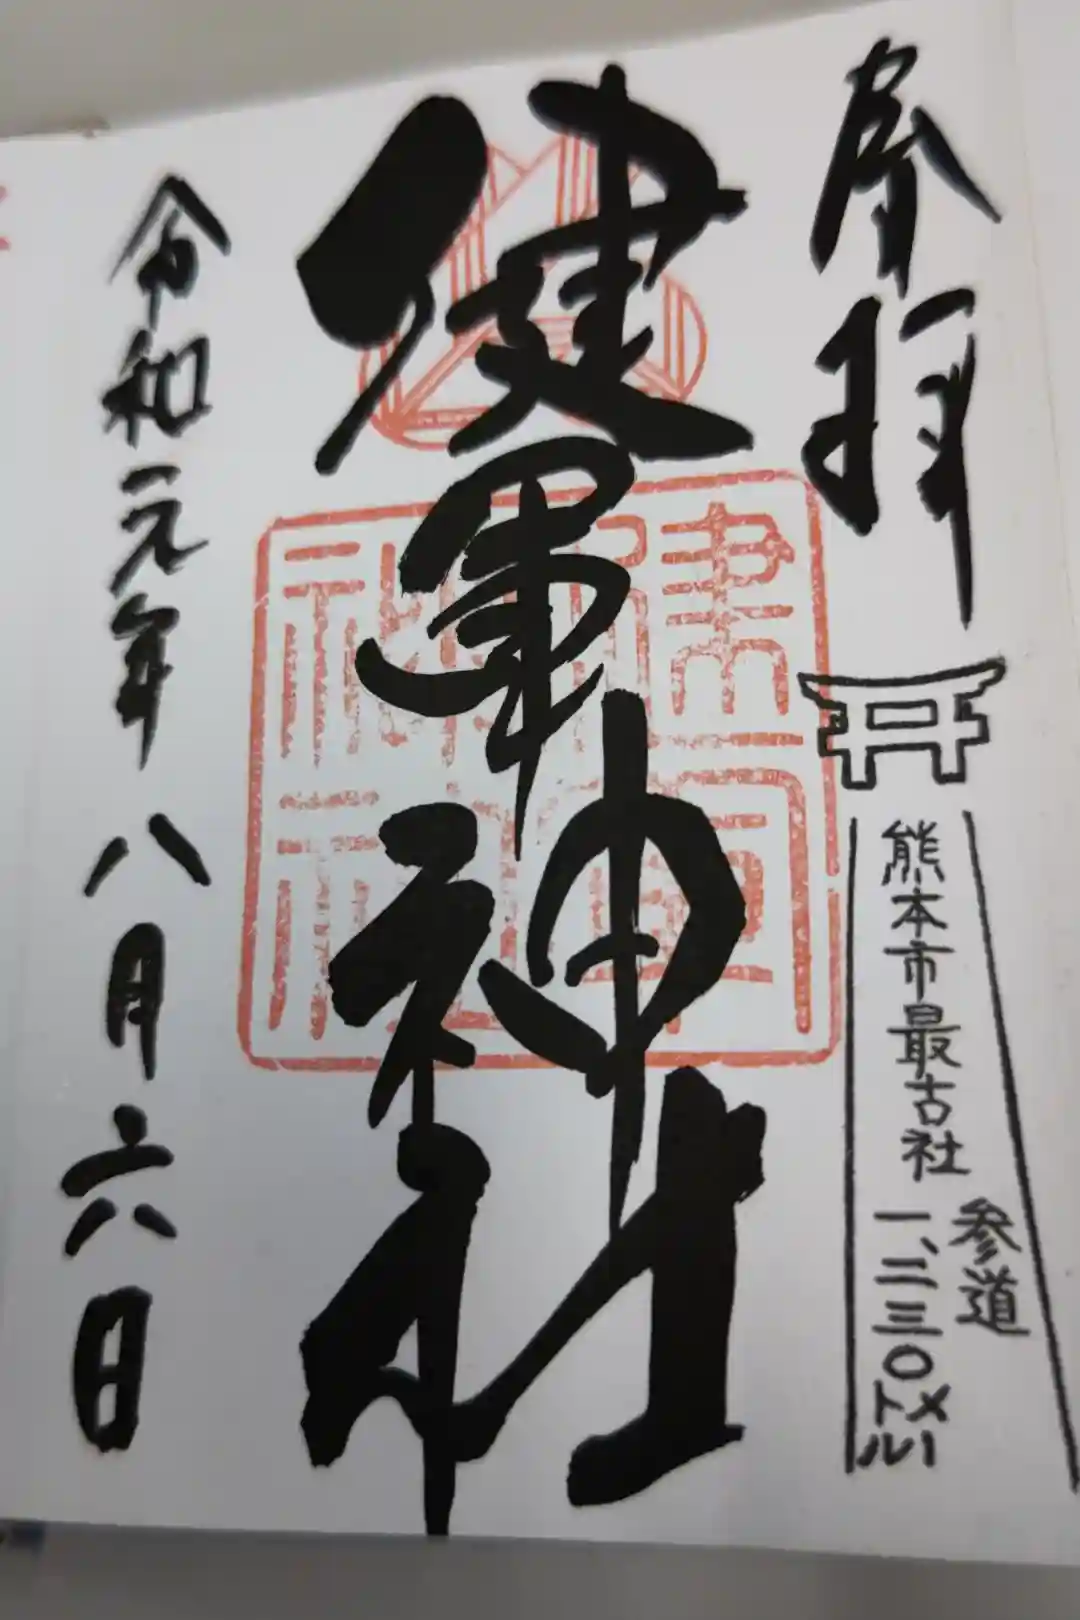 奉拝
熊本市最古社
参道
一、二三〇メートル
健軍神社
令和元年八月六日